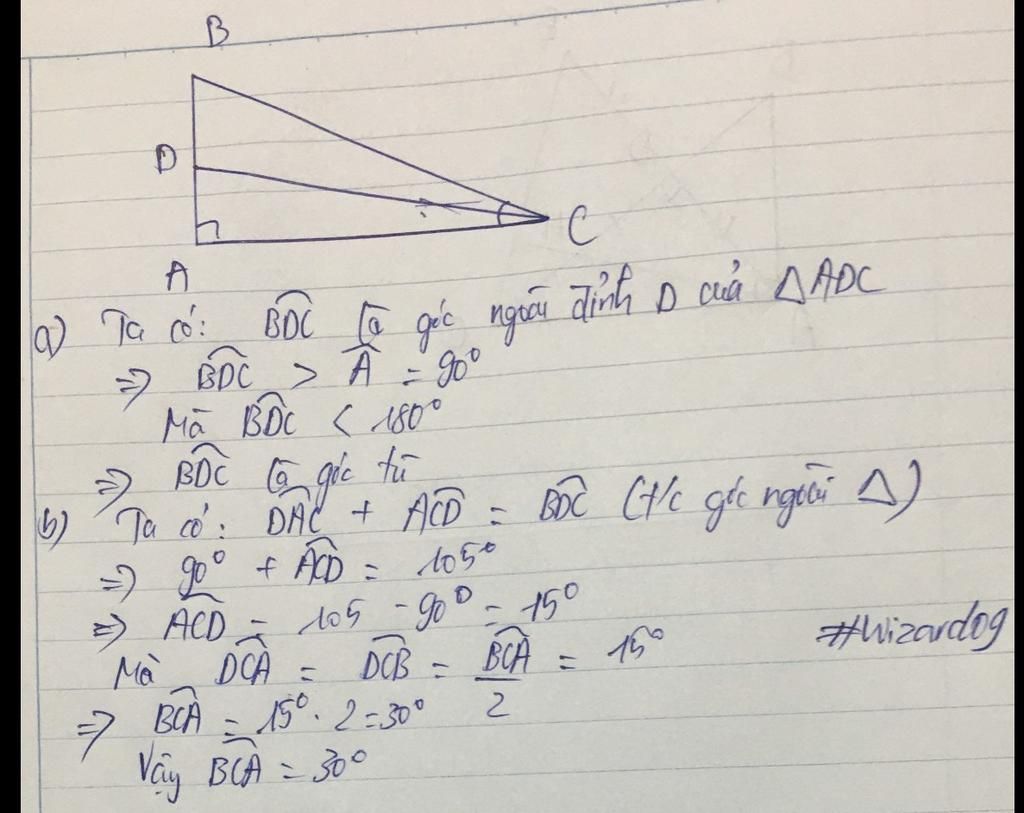 B
D
C
A
a) Ta có: BDC là góc ngoài đỉnh D của △ADC
=> BDC > A = 90°
Mà BDC < 180°
=> BDC là góc tù
b) Ta có: DAC + ACD = BDC (t/c góc ngoài △)
=> 90° + ACD = 105°
=> ACD = 105 - 90° = 15°
#Wizardog
Mà DCA = DCB = BCA/2 = 15°
=> BCA = 15° . 2 = 30°
Vậy BCA = 30°